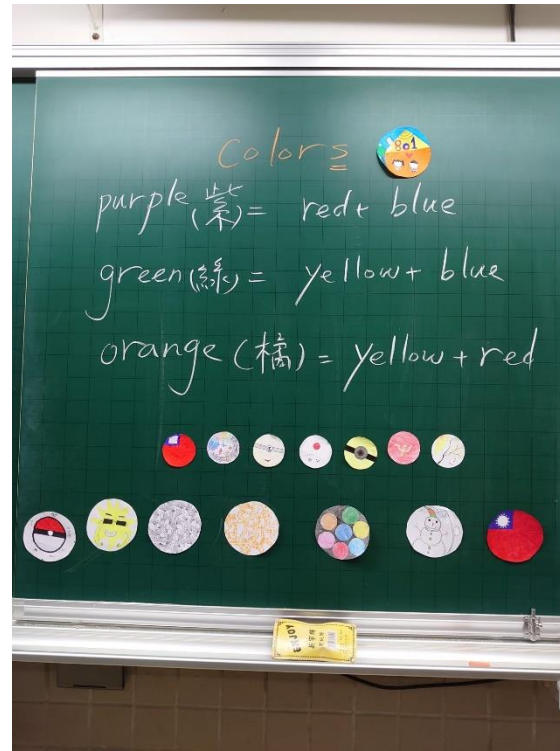 Colors
801
purple (紫) = red + blue
green (綠) = yellow + blue
orange (橘) = yellow + red
ENJOY